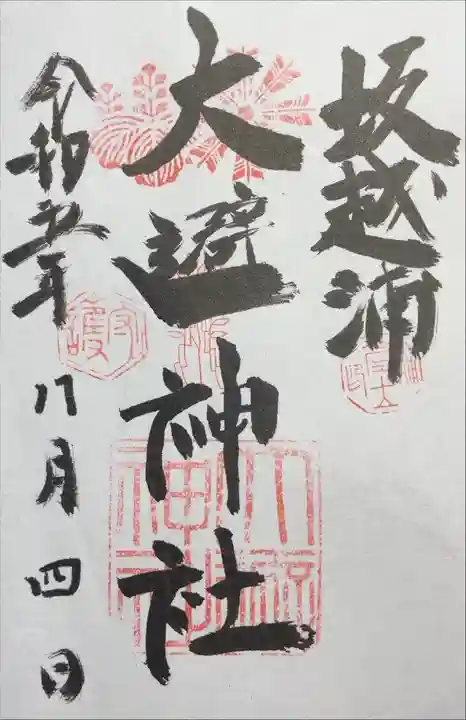 坂越浦
大避神社
令和五年八月四日